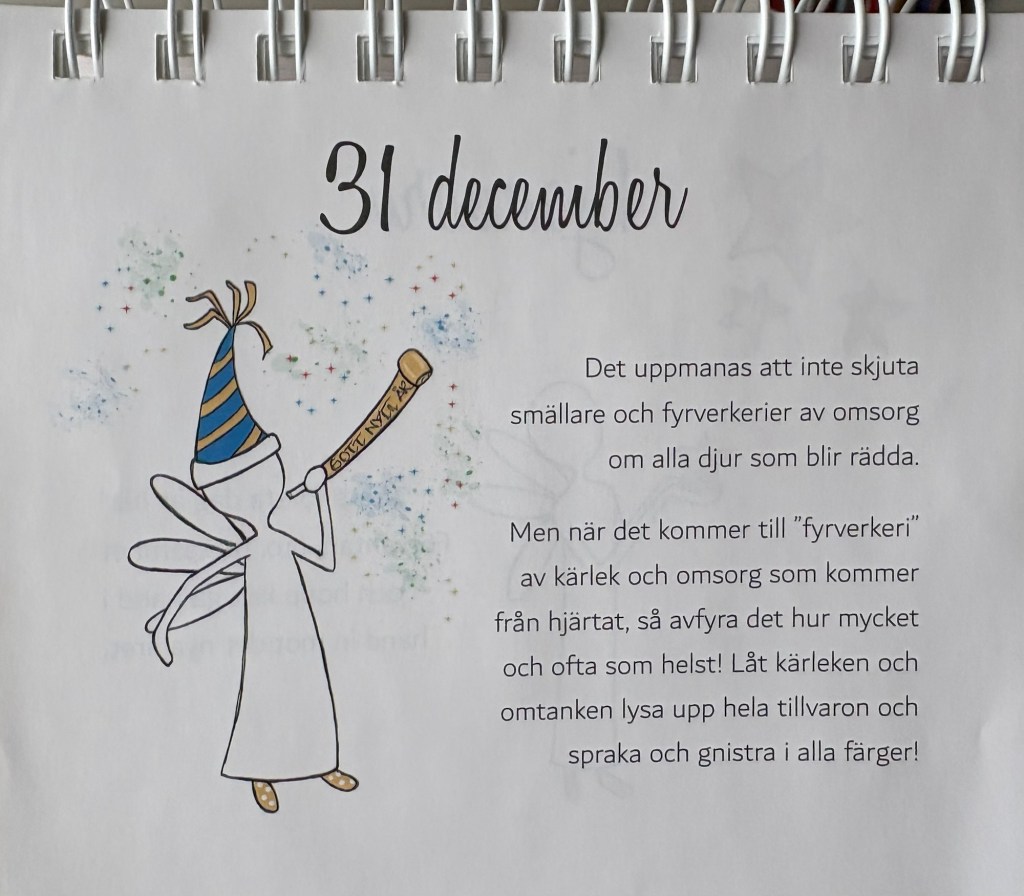 31 december
GOTT NYTT ÅR
Det uppmanas att inte skjuta
smällare och fyrverkerier av omsorg
om alla djur som blir rädda.
Men när det kommer till ”fyrverkeri”
av kärlek och omsorg som kommer
från hjärtat, så avfyra det hur mycket
och ofta som helst! Låt kärleken och
omtanken lysa upp hela tillvaron och
spraka och gnistra i alla färger!